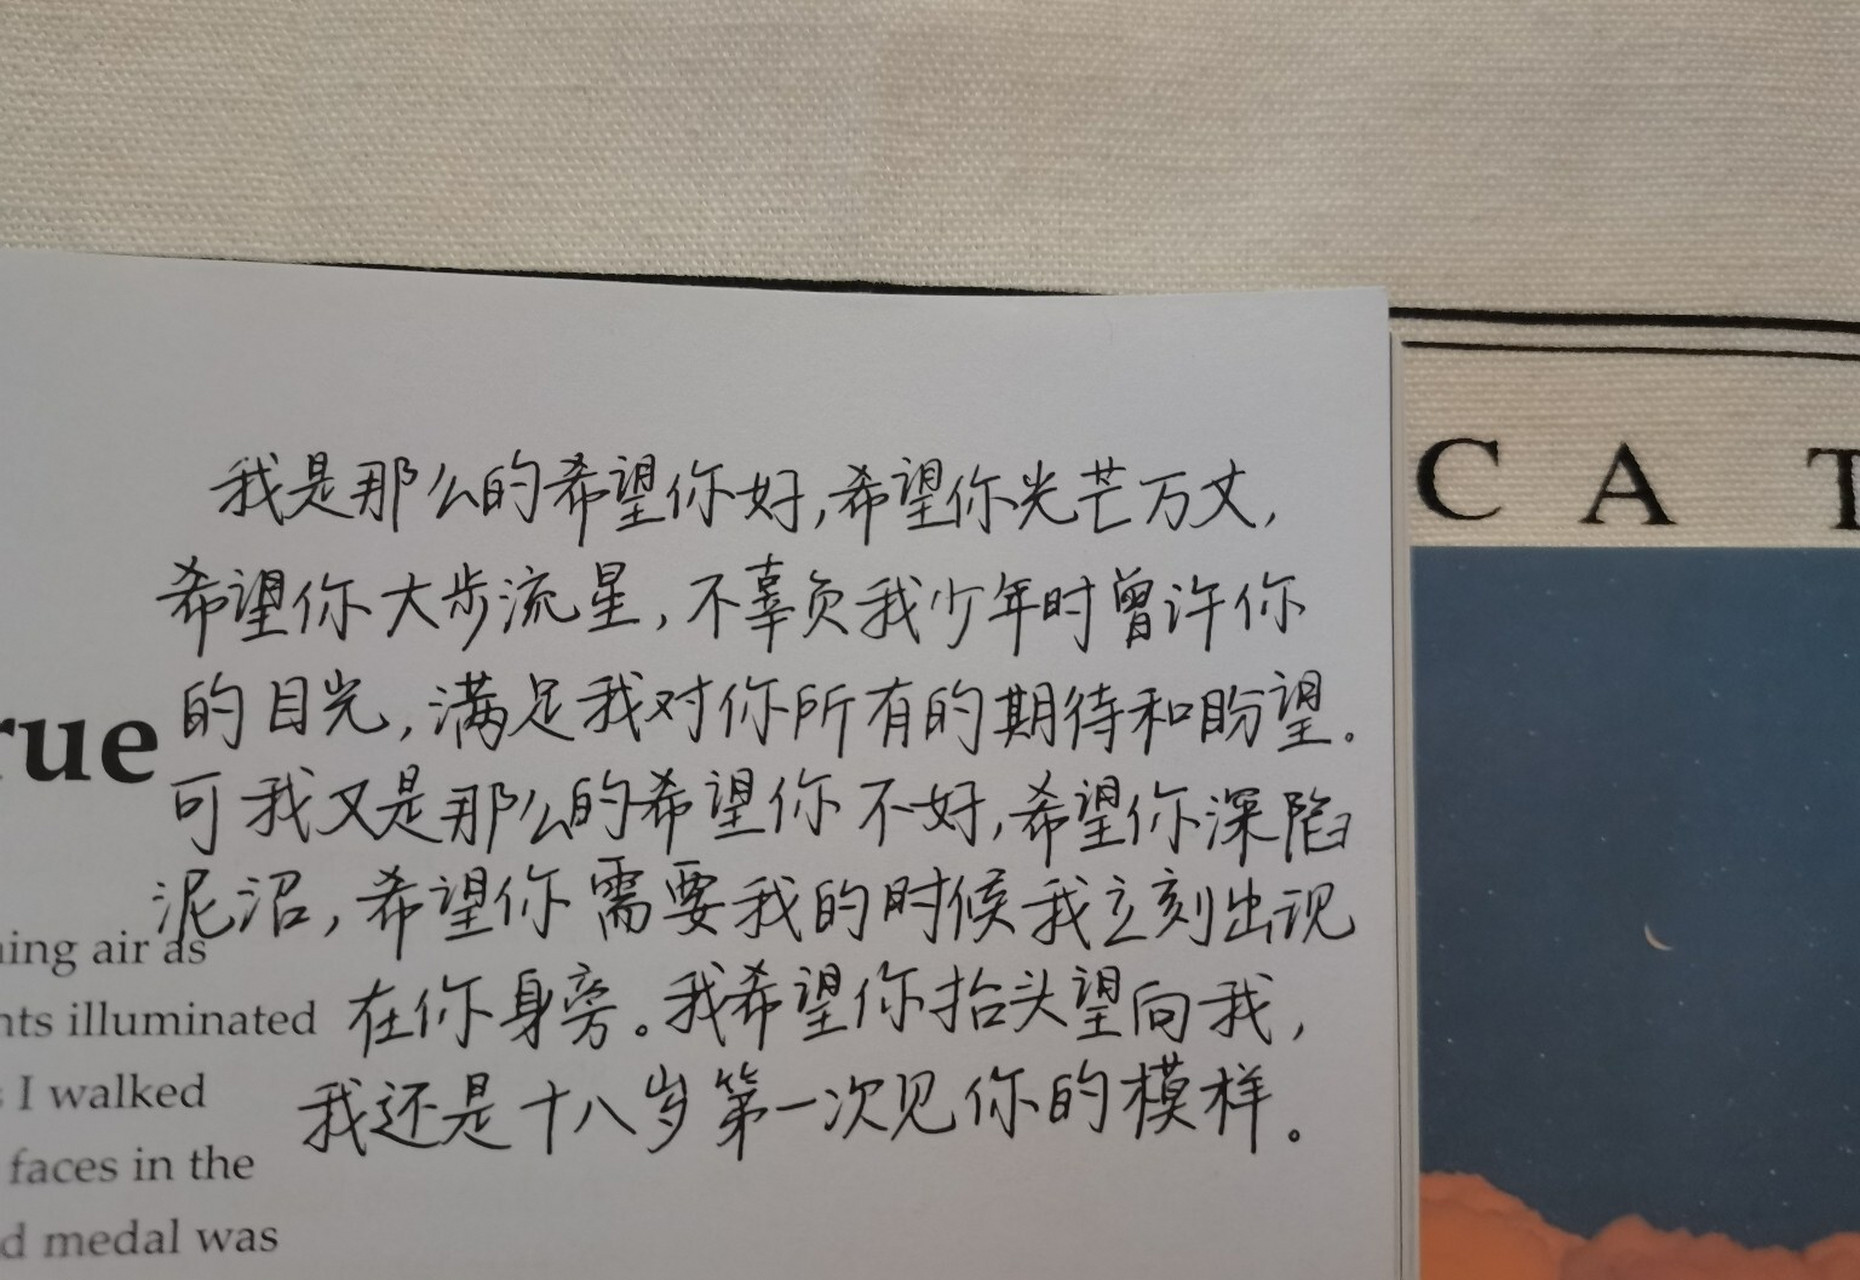 我是那么的希望你好,希望你光芒万丈,
希望你大步流星,不辜负我少年时曾许你
的目光,满足我对你所有的期待和盼望.
可我又是那么的希望你不好,希望你深陷
泥沼,希望你需要我的时候我立刻出现
在你身旁。我希望你抬头望向我,
我还是十八岁第一次见你的模样。
rue
ing air as
nts illuminated
s I walked
faces in the
d medal was
C A T